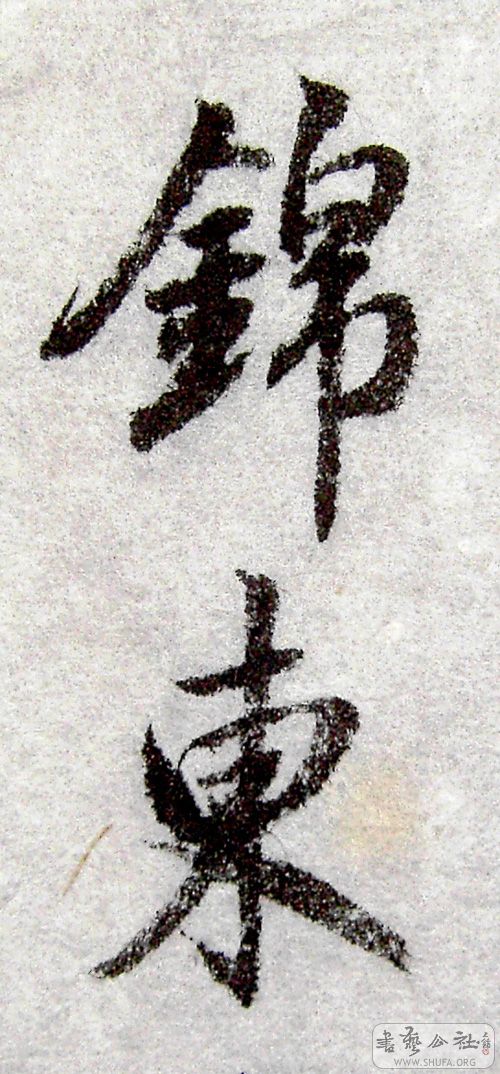 錦東
書藝公社
WWW.SHUFA.ORG